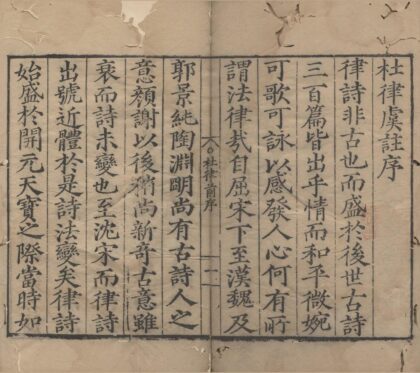 杜律虞註序
律詩非古也而盛於後世古詩
三百篇皆出乎情而和平微婉
可歌可詠以感發人心何有所
謂法律㢤自屈宋下至漢魏及
郭景純陶淵明尚有古詩人之
杜律前序
一
意顏謝以後稍尚新奇古意雖
衰而詩未變也至沈宋而律詩
出號近體於是詩法變矣律詩
始盛於開元天寶之際當時如